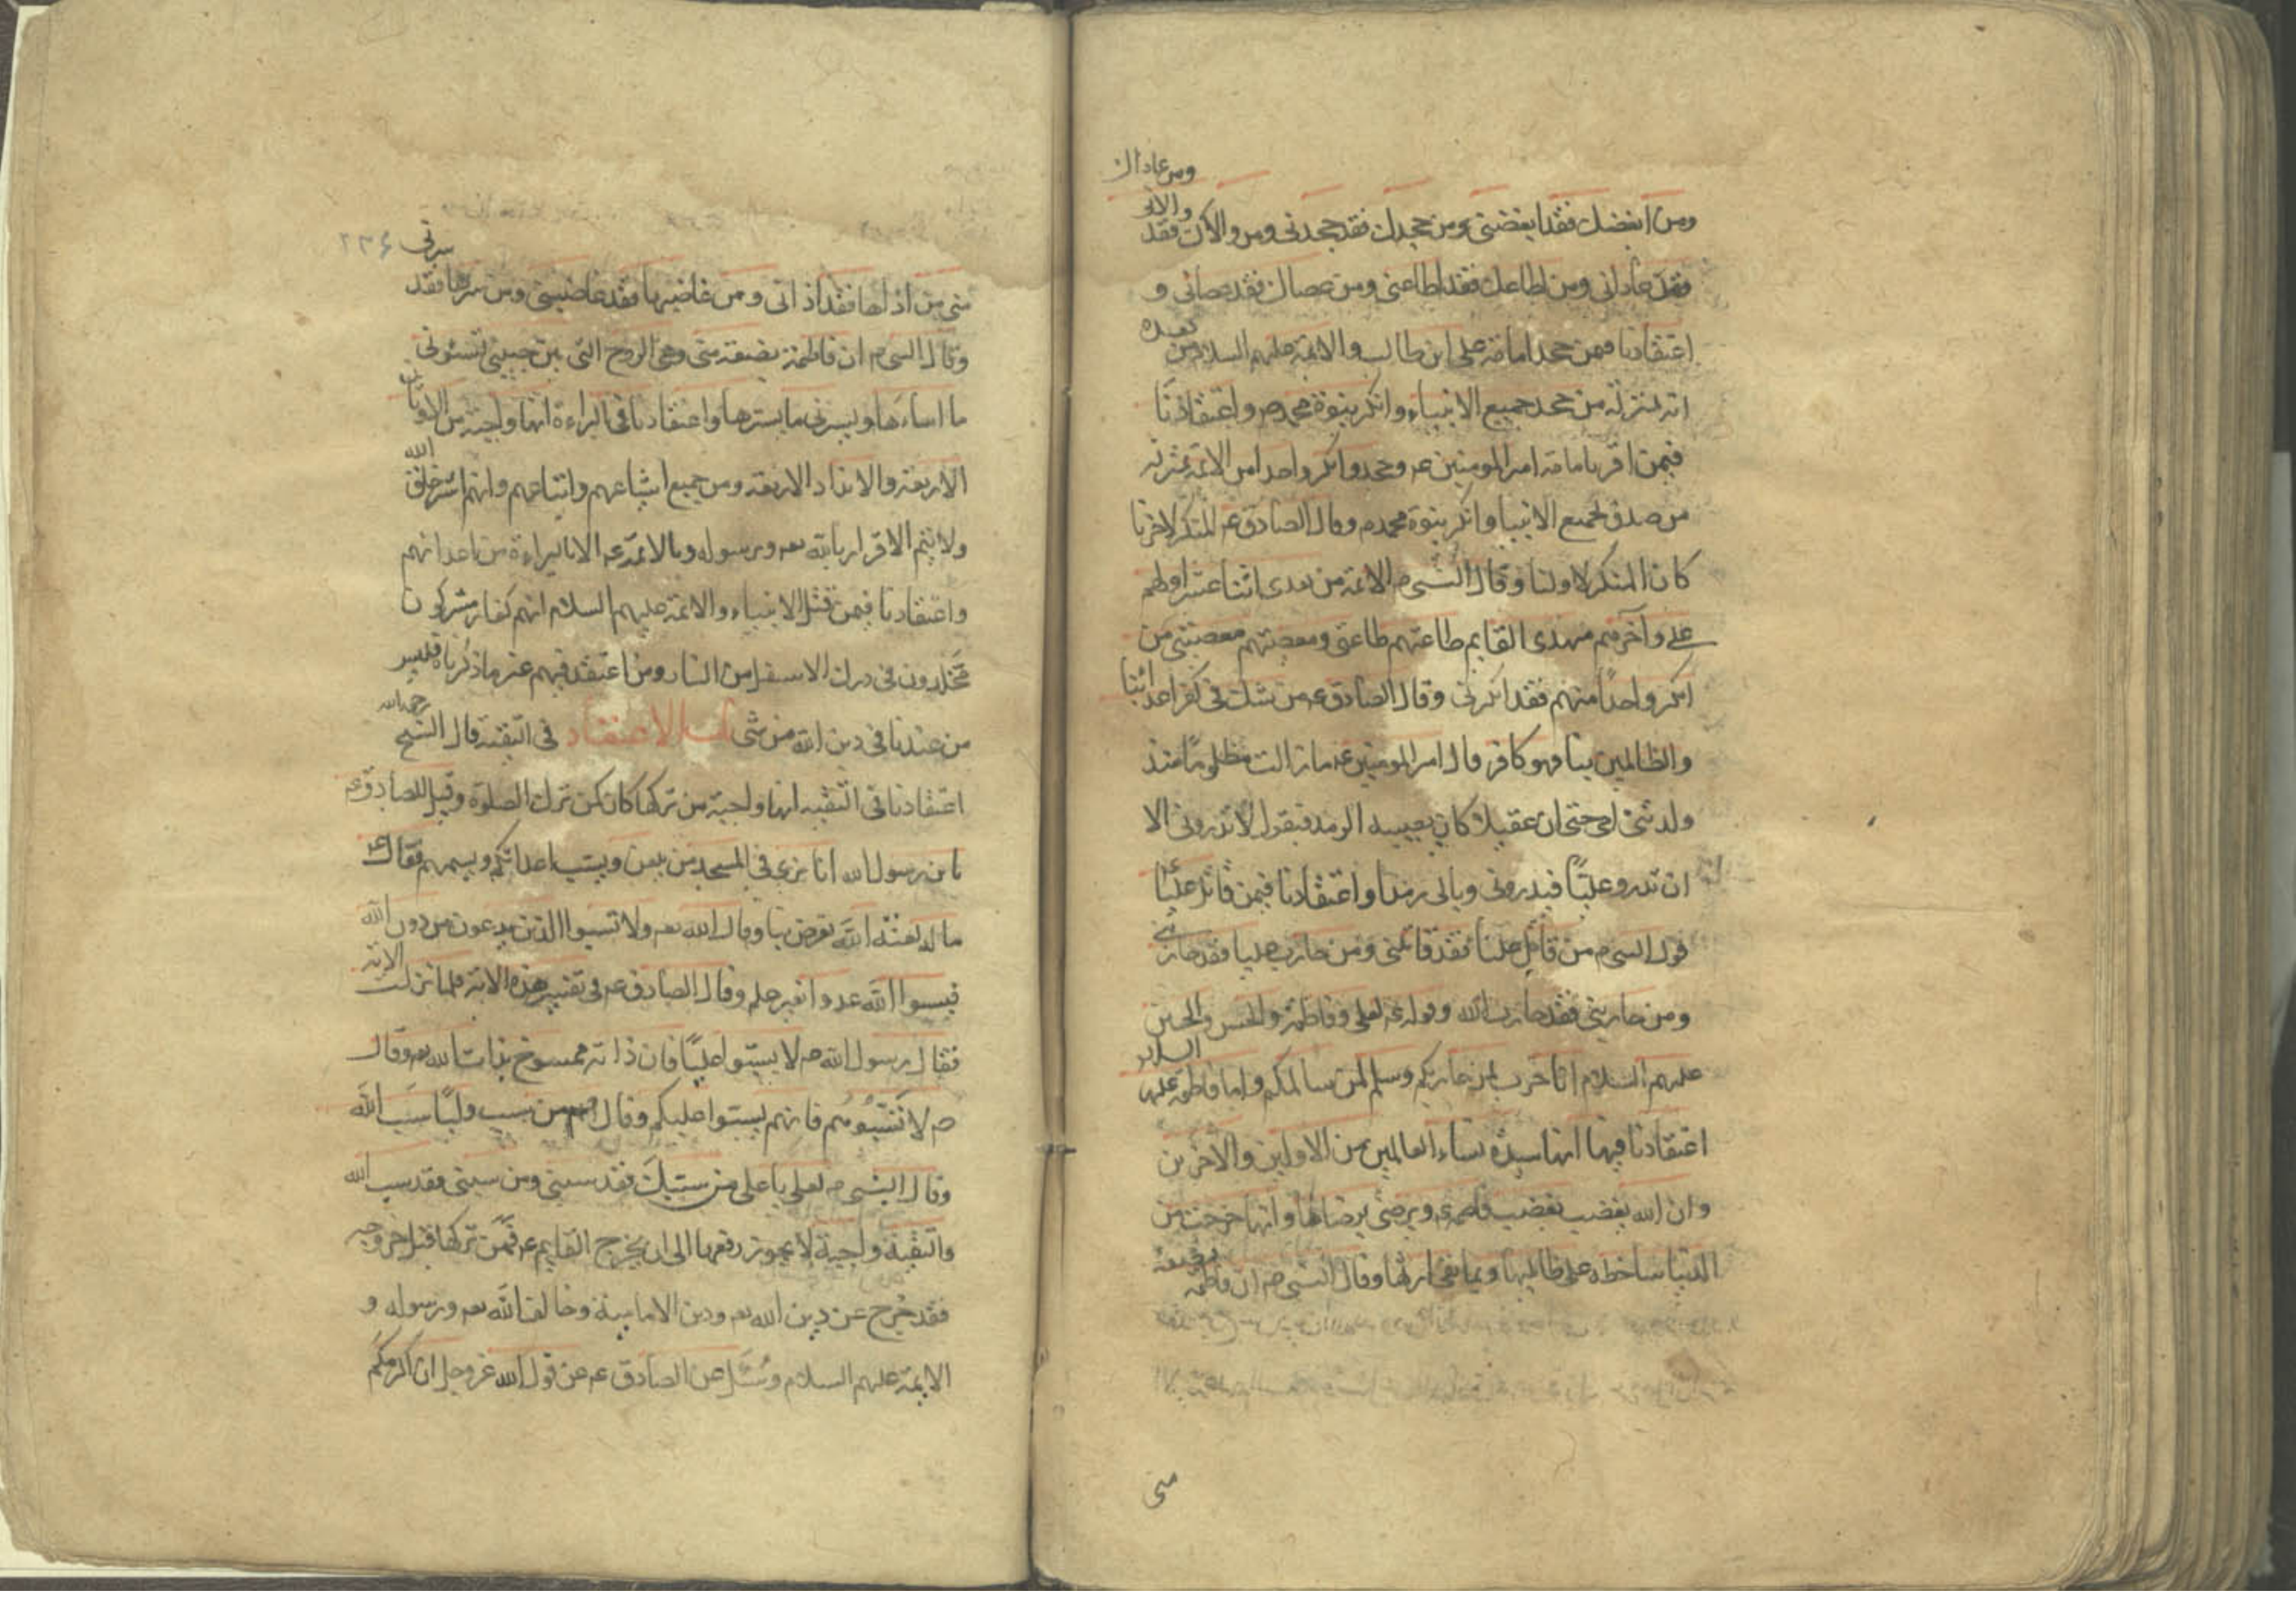 ومن ابغضك فقد ابغضنى ومن جحدك فقد جحدنى ومن والاك فقد والانى
ومن عاداك
فقد عادانى ومن اطاعك فقد اطاعنى ومن عصاك فقد عصانى و
اعتقادنا فمن جحد امامة على ابن طالب والائمة عليهم السلام من بعده
انه بمنزلة من جحد جميع الانبياء وانكر بنوة محمد ص واعتقادنا
فيمن اقر بامامة امير المومنين ع وجحد وانكر واحدا من الائمة بمنزلة
من صدق بجميع الانبيا وانكر بنوة محمد ص وقال الصادق ع المنكر لاخرنا
كان المنكر لاولنا وقال النبى ص الائمة من بعدى اثنا عشر اولهم
على وآخرهم مهدى القايم طاعتهم طاعتى ومعصيتهم معصيتى من
انكر واحدًا منهم فقد انكرنى وقال الصادق ع من شك فى كفر اعدائنا
والظالمين بنا فهو كافر قال امير المومنين ع ما زالت مظلومًا منذ
ولدتنى امى حتى ان عقيلا كان يصيبه الرمد فيقول لا تدرونى الا
ان تدرو عليًا فيدرونى وبالى رمد واعتقادنا فيمن قاتل عليًا ع
قول النبى ص من قاتل عليا فقد قاتلنى ومن حارب عليا فقد حاربنى
ومن حاربنى فقد حارب الله وقوله ع لعلى وفاطمة والحسن والحسين
عليهم السلام انا حرب لمن حاربكم وسلم لمن سالمكم واما فاطمة عليها السلام
اعتقادنا فيها انها سيدة نساء العالمين من الاولين والآخرين
وان الله يغضب بغضب فاطمة ويرضى برضاها وانها خرجت من
الدنيا ساخطة على ظالميها وبما بقى ارثها وقال النبى ص ان فاطمة بضعة
منى
٢٣۶
منى من اذاها فقد اذانى ومن غاضبها فقد غاضبنى ومن سرها فقد سرنى
وقال النبى ص ان فاطمة بضعة منى وهى الروح التى بين جنبيى تسئونى
ما اساءها ويسرنى ما يسترها واعتقادنا فى البراءة انها واجبة من الاوثان
الاربعة والانداد الاربعة ومن جميع اشياعهم واتباعهم وانهم اشر خلق الله
ولا يتم الاقرار بالله تعـ وبرسوله وبالائمة ع الا بالبراءة من اعدائهم
واعتقادنا فيمن قتل الانبياء والائمة عليهم السلام انهم كفار مشركون
مخلدون فى درك الاسفل من النار ومن اعتقد فيهم غير ما ذكرناه فليس
من عندنا فى دين الله من شى باب الاعتقاد فى التقية قال الشيخ رحمه الله
اعتقادنا فى التقيه انها واجبة من تركها كان كمن ترك الصلوة وقيل للصادق ع
يا بن رسول الله انا نرى فى المسجد من يعلن ويسب اعدائكم ويسميهم فقال ع
ما له لعنه الله تعرض بنا وقال الله تعـ ولا تسبوا الذين يدعون من دون الله
فيسبوا الله عدوا بغير علم وقال الصادق ع فى تفسير هذه الاية فلما نزلت الاية
فقال رسول الله ص لا يسبوا عليًا فان ذاته ممسوخ بذات الله تعـ وقال
ص لا تسبوهم فانهم يسبوا عليكم وقال فمهم من سب وليًا سب الله
وقال النبى ص لعلى يا على من سبك فقد سبنى ومن سبنى فقد سب الله
والتقية واجبة لا يجوز رفعها الى ان يخرج القايم ع فمن تركها قبل خروجه
فقد خرج عن دين الله تعـ ودين الامامية وخالف الله تعـ ورسوله و
الائمة عليهم السلام وسئل عن الصادق ع عن قول الله عز وجل ان اكرمكم